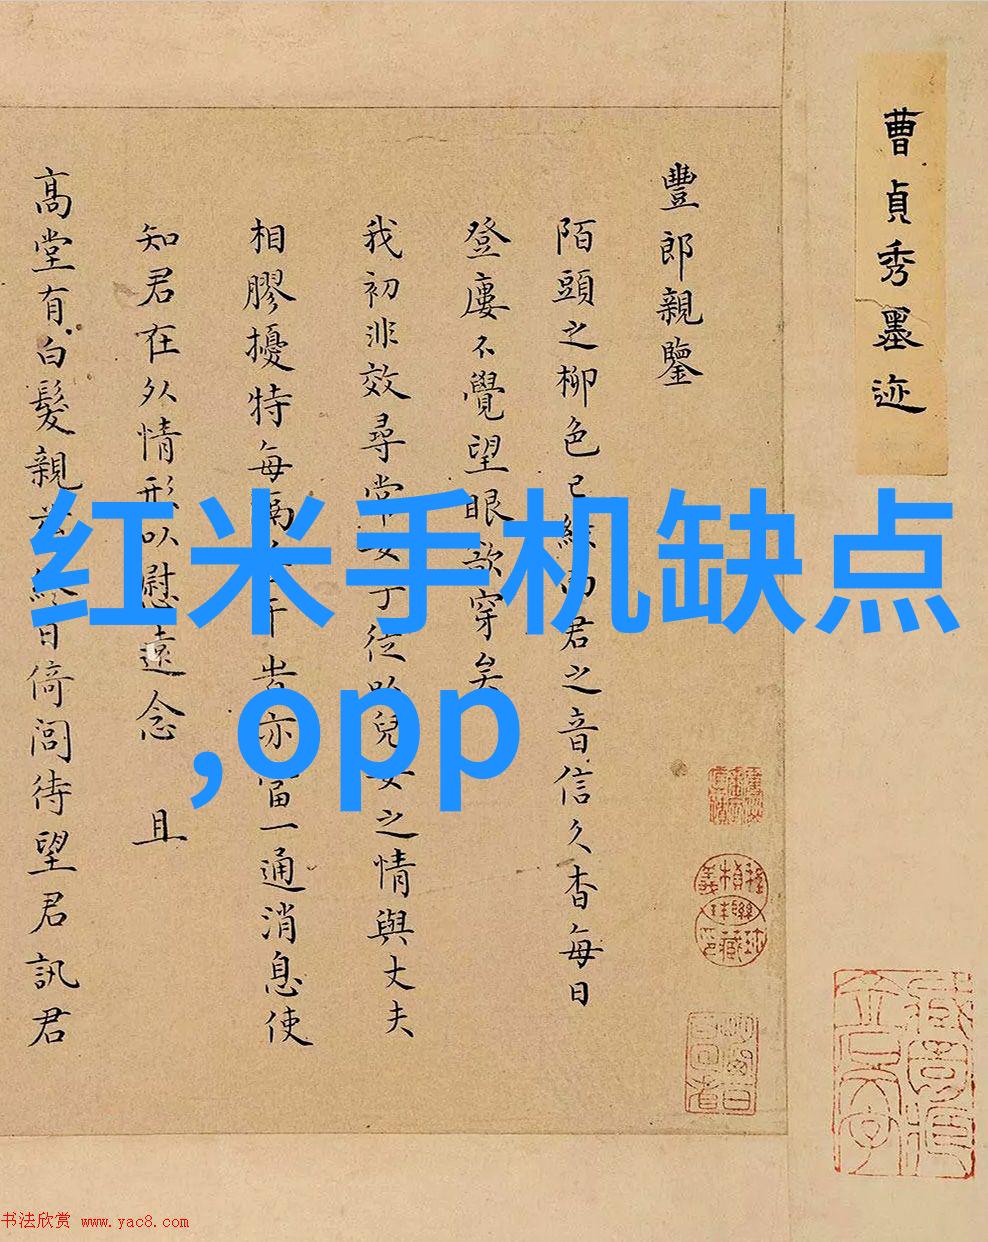 曹貞秀墨迹
豐郎親鑒
陌頭之柳色已綠而君之音信久杳每日
登廔不覺望眼欲穿矣
我初非效尋常女子徒以兒女之情與丈夫
相膠擾特每爲若干者亦當一通消息使
知君在外情形以慰遠念 且
高堂有白髮親 終日倚閭待望君訊君
红米手机缺点
,opp
书法欣赏 www.yac8.com